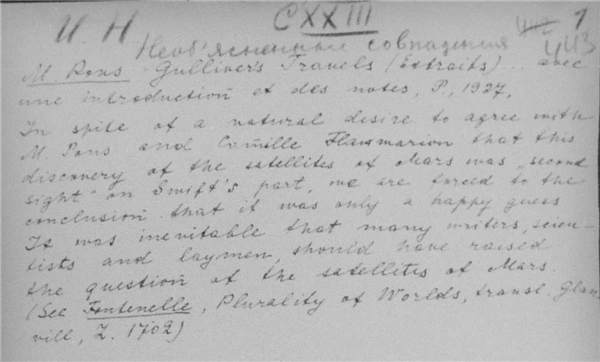 И. Н CXXIII 1
Необ'ясненные совпадения 443
M. Pons - Gulliver's Travels (Extraits) .. avec
une introduction et des notes, P., 1927.
In spite of a natural desire to agree with
M. Pons and Camille Flammarion that this
discovery of the satellites of Mars was „second
sight" on Swift's part, we are forced to the
conclusion that it was only a happy guess
It was inevitable that many writers, scien-
tists and laymen, should have raised
the question of the satellites of Mars.
(See Fontenelle, Plurality of Worlds, transl. Glan-
vill, L. 1702)